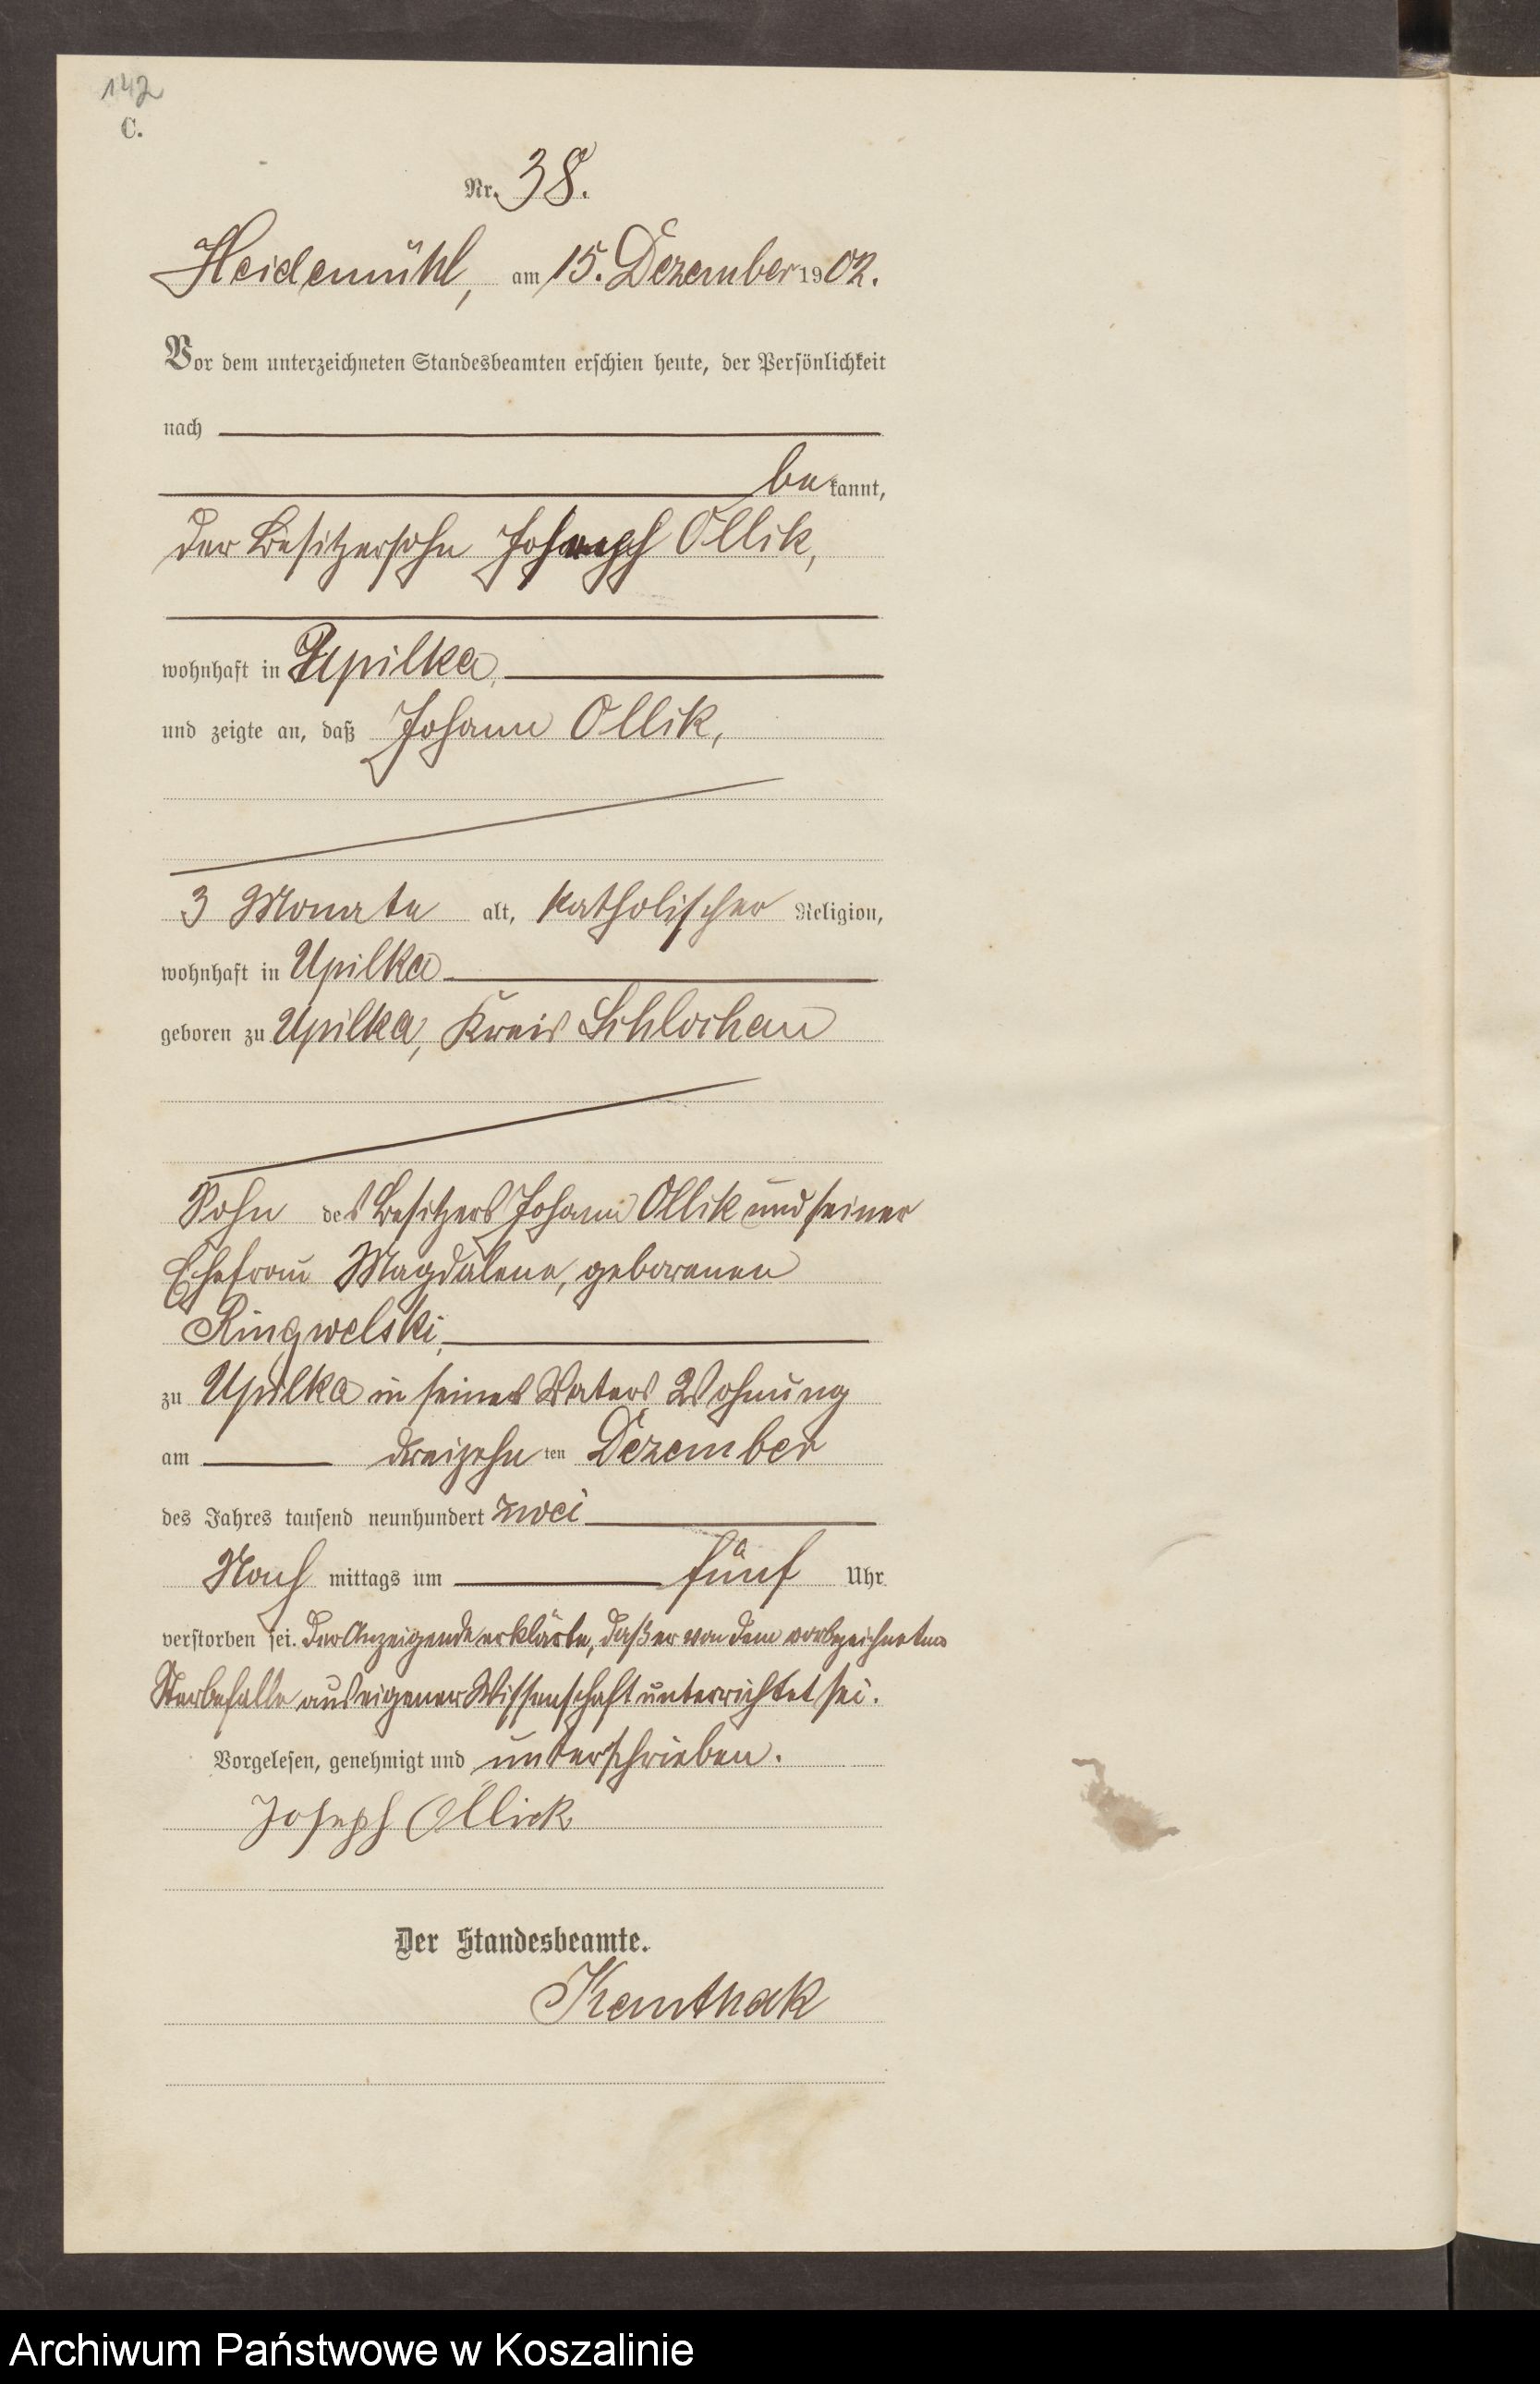 142
C.
Nr. 38.
Heidemühl, am 15. Dezember 1902.
Vor dem unterzeichneten Standesbeamten erschien heute, der Persönlichkeit
nach
be kannt,
der Besitzersohn Joseph Ollik,
wohnhaft in Upilka,
und zeigte an, daß Johann Ollik,
3 Monate alt, katholischer Religion,
wohnhaft in Upilka
geboren zu Upilka, Kreis Schlochau
Sohn des Besitzers Johann Ollik und seiner
Ehefrau Magdalene, geborenen
Ringwelski,
zu Upilka in seines Vaters Wohnung
am dreizehn ten Dezember
des Jahres tausend neunhundert zwei
Nach mittags um fünf Uhr
verstorben sei. Der Anzeigende erklärte, daß er von dem vorbezeichneten
Sterbefalle aus eigener Wissenschaft unterrichtet sei.
Vorgelesen, genehmigt und unterschrieben.
Joseph Ollick
Der Standesbeamte.
Archiwum Państwowe w Koszalinie